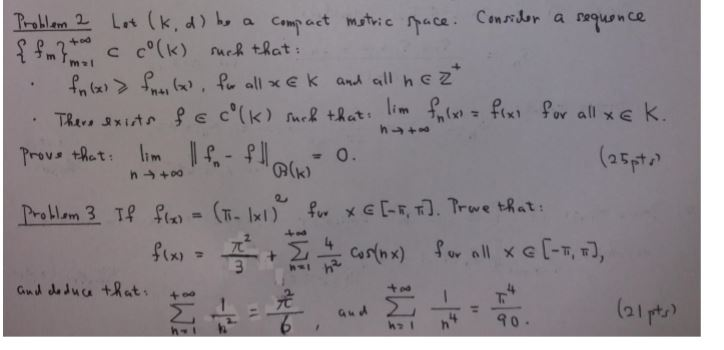 Problem 2 Let (K, d) be a compact metric space. Consider a sequence
{f_m}_{m=1}^{+∞} ⊂ C⁰(K) such that:
· f_n(x) ⩾ f_{n+1}(x), for all x ∈ K and all n ∈ ℤ⁺
· There exists f ∈ C⁰(K) such that: lim_{n→+∞} f_n(x) = f(x) for all x ∈ K.
Prove that: lim_{n→+∞} ‖f_n - f‖_{B(K)} = 0. (25pts)
Problem 3 If f(x) = (π - |x|)² for x ∈ [-π, π]. Prove that:
f(x) = π²/3 + Σ_{n=1}^{+∞} 4/n² cos(nx) for all x ∈ [-π, π],
and deduce that: Σ_{n=1}^{+∞} 1/n² = π²/6, and Σ_{n=1}^{+∞} 1/n⁴ = π⁴/90. (21pts)